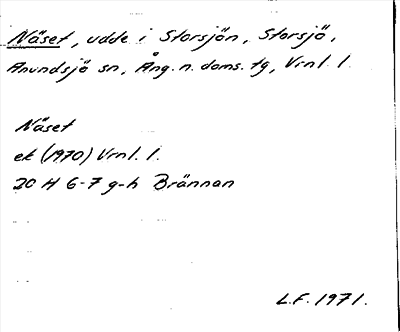 Näset, udde i Storsjön, Storsjö,
Anundsjö sn, Ång. n. doms. tg, Vrnl. l.
Näset
ek (1970) Vrnl. l.
20 H 6-7 g-h Brännan
L.F. 1971.